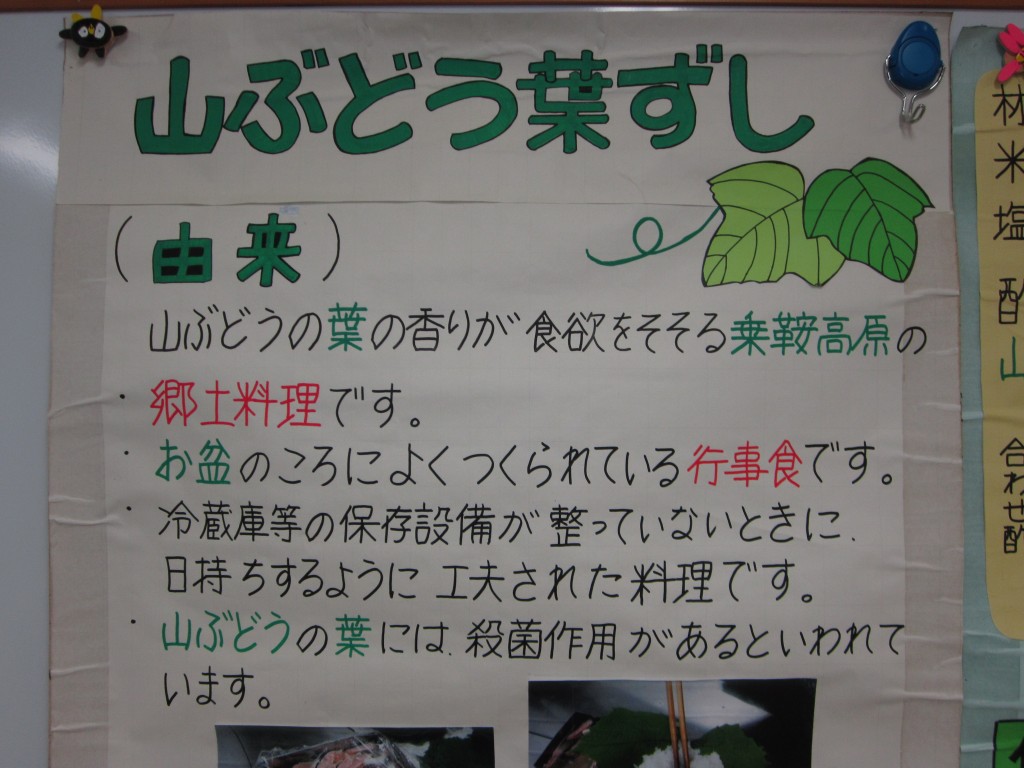 山ぶどう葉ずし
(由来)
山ぶどうの葉の香りが食欲をそそる乗鞍高原の
・郷土料理です。
・お盆のころによくつくられている行事食です。
・冷蔵庫等の保存設備が整っていないときに、
日持ちするように工夫された料理です。
・山ぶどうの葉には、殺菌作用があるといわれて
います。
材
米
塩
酢
山
合わせ酢